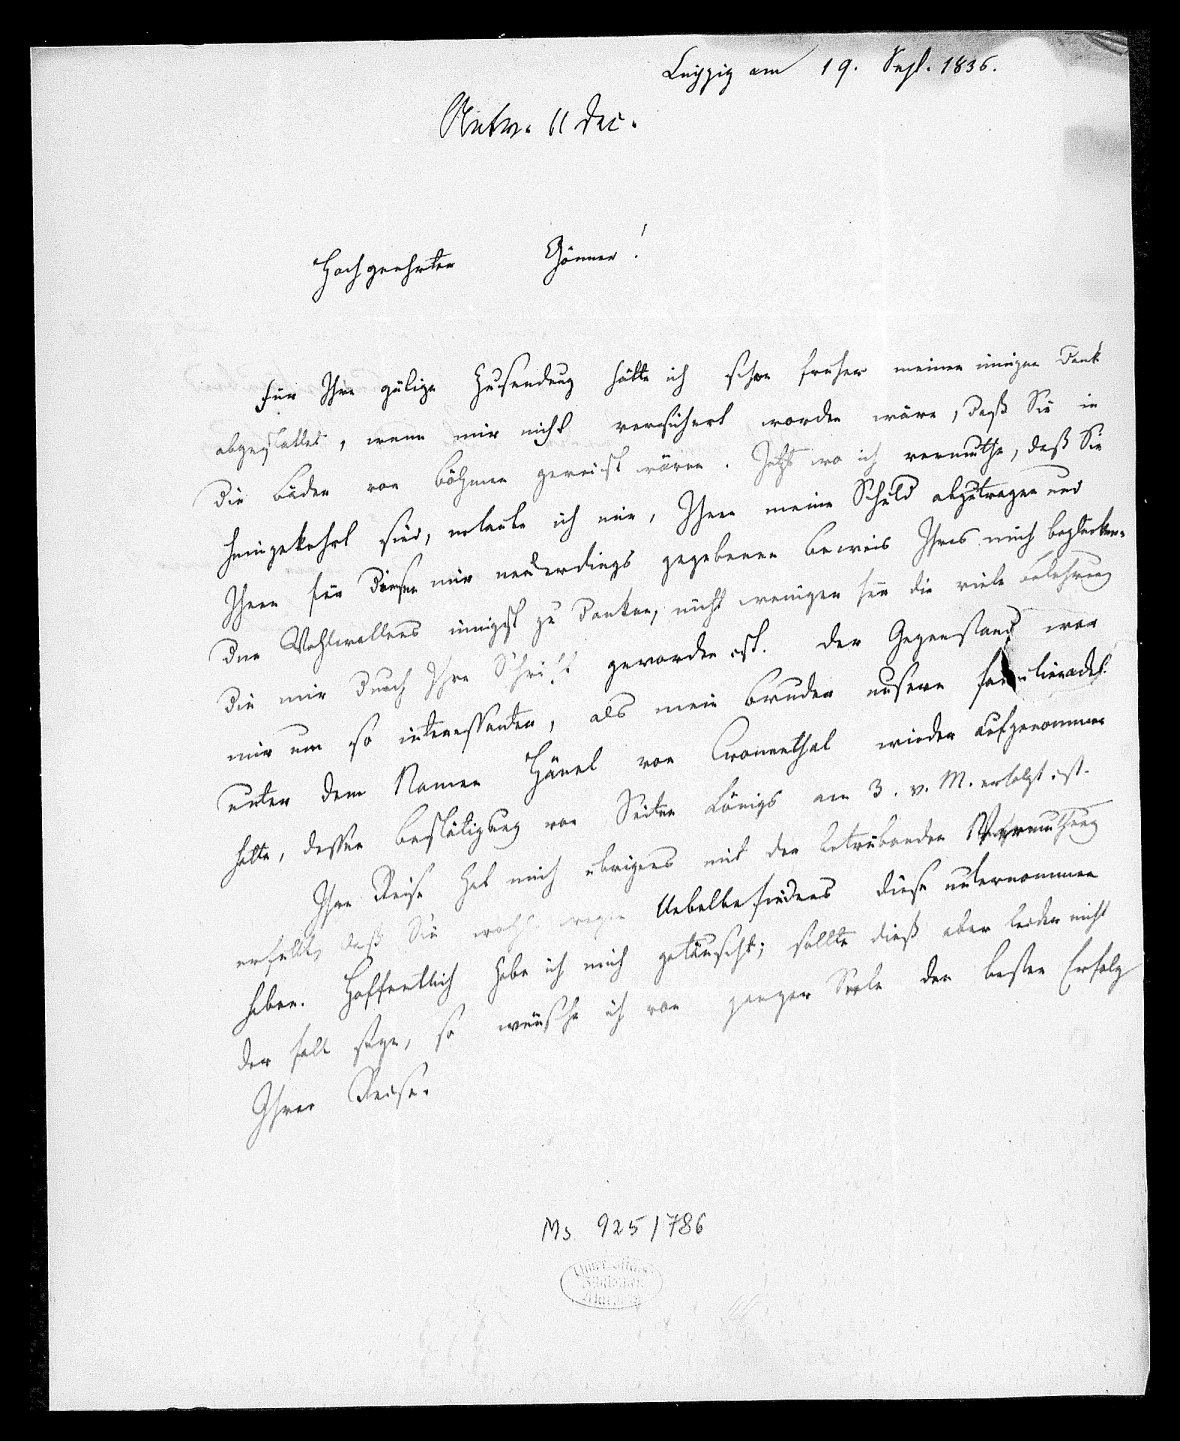 Leipzig am 19. Sept. 1836.
Antw. 11 Dec.
Hochgeehrter Gönner!
Für Ihre gütige Zusendung hätte ich schon früher meinen innigen Dank
abgestattet, wenn mir nicht versichert worden wäre, daß Sie in
die Bäder von Böhmen gereist wären. Jetzt wo ich vermuthe, daß Sie
heimgekehrt sind, erlaube ich mir, Ihnen meine Schuld abzutragen und
Ihnen für diesen mir neuerdings gegebenen Beweis Ihres mich beglücken-
den Wohlwollens innigst zu danken, nicht weniger für die viele Belehrung
die mir durch Ihre Schrift geworden ist. Der Gegenstand war
mir um so interessanter, als mein Bruder unsern Familienadel
unter dem Namen Hänel von Cronenthal wieder aufgenommen
hatte, dessen Bestätigung von Seiten Königs am 3. v. M. erfolgt ist.
Ihre Reise hat mich übrigens mit der betrübenden Vermuthung
erfüllt, daß Sie wohl wegen Uebelbefindens diese unternommen
haben. Hoffentlich habe ich mich getäuscht; sollte dieß aber leider nicht
der Fall seyn, so wünsche ich von ganzer Seele den besten Erfolg
Ihrer Reise.
Ms 925/786